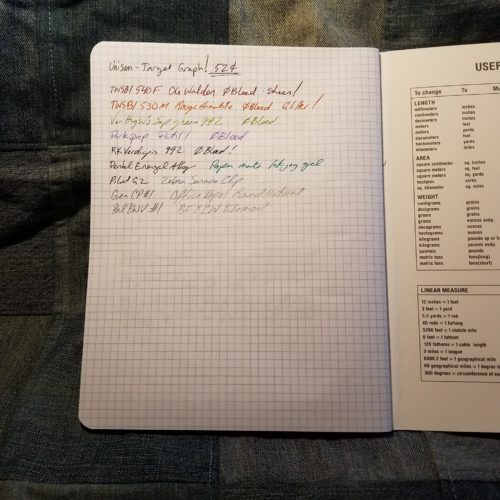 Unison - Target Graph! 52¢
TWSBI 580F Ole Walden ØBleed Sheen!
TWSBI 530M Rouge Hematite ØBleed Glitter!
Van Gogh's Sap green 992 ØBleed
ØBleed
RK Verdigris 992 ØBleed!
Pentel Energel Alloy Paper mate Inkjoy gel
Pilot G2 Zebra Sarasa Clip
Gen CP #1 Office Depot Round Natural
Pal BWV #1
USEF
To change To Mu
LENGTH
millimeters inches
centimeters inches
decimeters inches
meters feet
meters yards
decameters feet
hectometers yards
kilometers miles
AREA
square centimeter sq. inches
square meters sq. feet
square meters sq. yards
hectares acres
sq. kilometer sq. miles
WEIGHT
centigrams grains
decigrams grains
grams grains
grams ounces avdp.
decagrams ounces
hectograms ounces
kilograms pounds ap or tr
kilograms pounds avdp.
quintals pounds
metric tons tons(long)
metric tons tons(short)
LINEAR MEASURE
12 inches = 1 foot
3 feet = 1 yard
5.5 yards = 1 rod
40 rods = 1 furlong
5280 feet = 1 statute mile
6 feet = 1 fathom
120 fathoms = 1 cable length
3 miles = 1 league
6080.2 feet = 1 geographical mile
60 geographical miles = 1 degree
360 degrees = circumference of